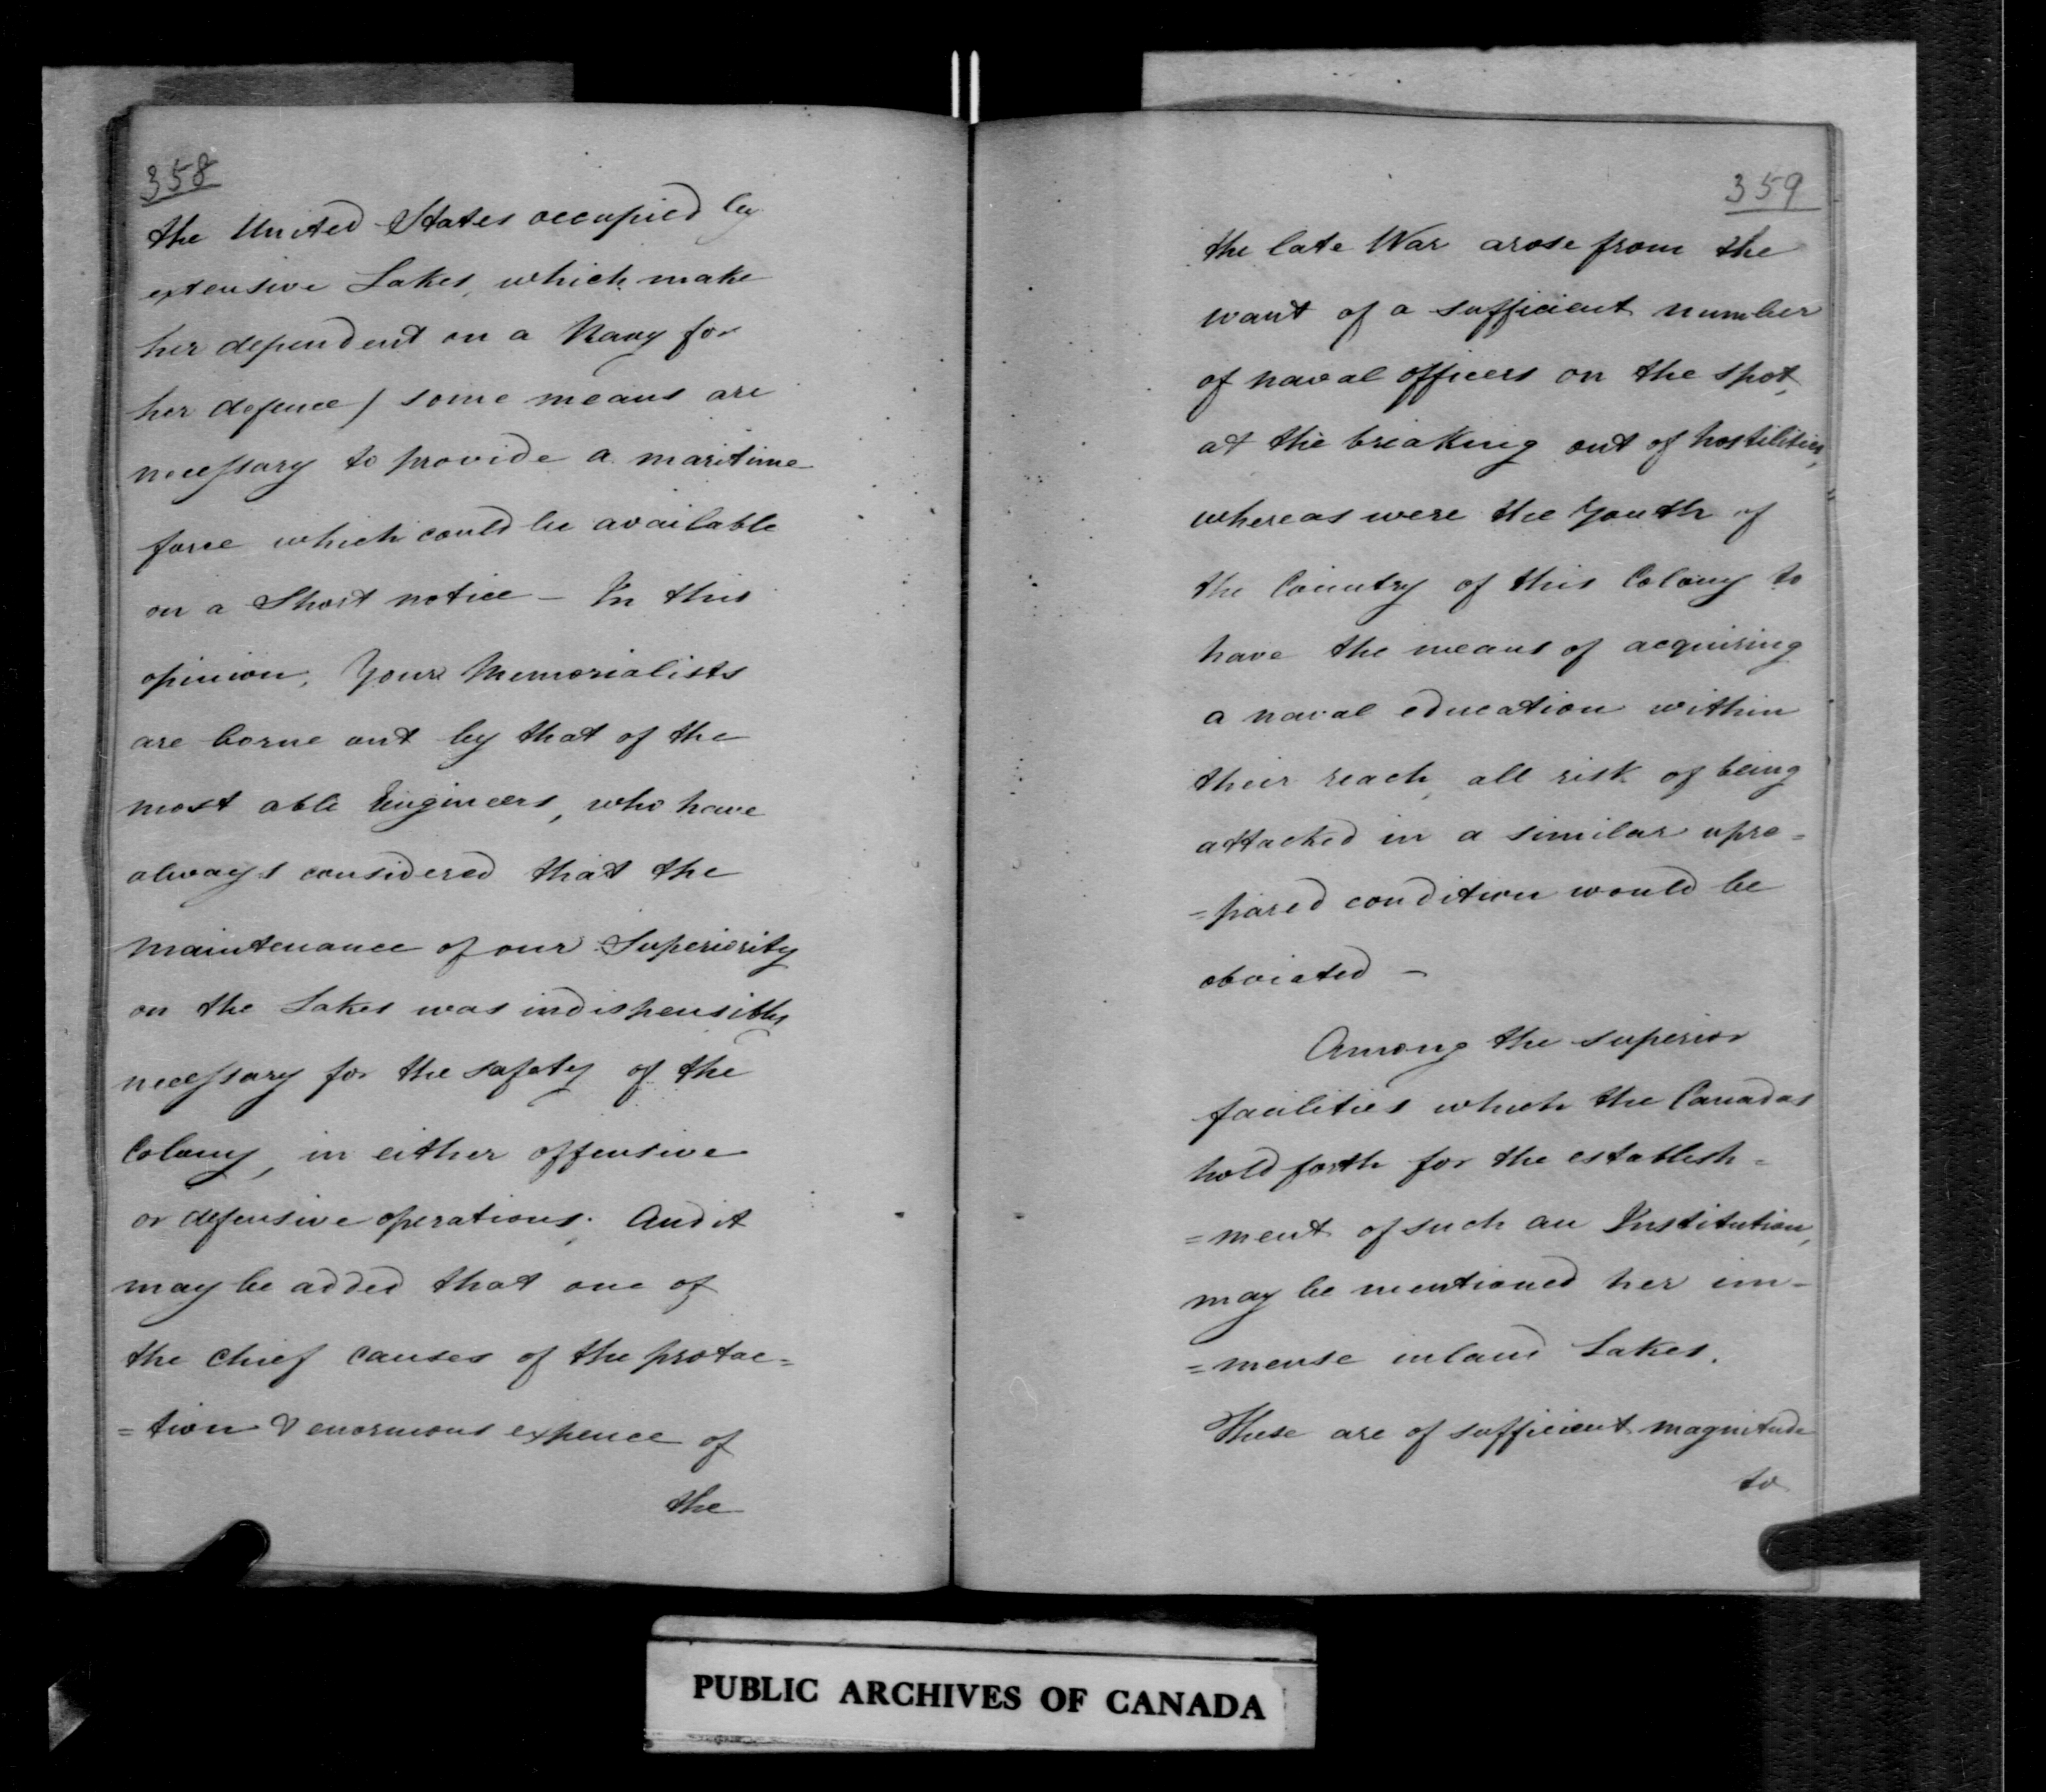 358
the United States occupied by
extensive Lakes, which make
her dependent on a Navy for
her defence) some means are
necessary to provide a maritime
force which could be available
on a Short notice — In this
opinion, Your Memorialists
are borne out by that of the
most able Engineers, who have
always considered that the
maintenance of our Superiority
on the Lakes was indispensibly
necessary for the safety of the
Colony, in either offensive
or defensive operations; And it
may be added that one of
the chief causes of the protac=
=tion & enormous expence of
the
359
the late War arose from the
want of a sufficient number
of naval officers on the spot,
at the breaking out of hostilities,
whereas were the Youth of
the Country of this Colony to
have the means of acquiring
a naval education within
their reach, all risk of being
attacked in a similar upre=
=pared condition would be
obviated —
Among the superior
facilities which the Canadas
hold forth for the establish=
=ment of such an Institution,
may be mentioned her im-
=mense inland Lakes.
These are of sufficient magnitude
to
PUBLIC ARCHIVES OF CANADA